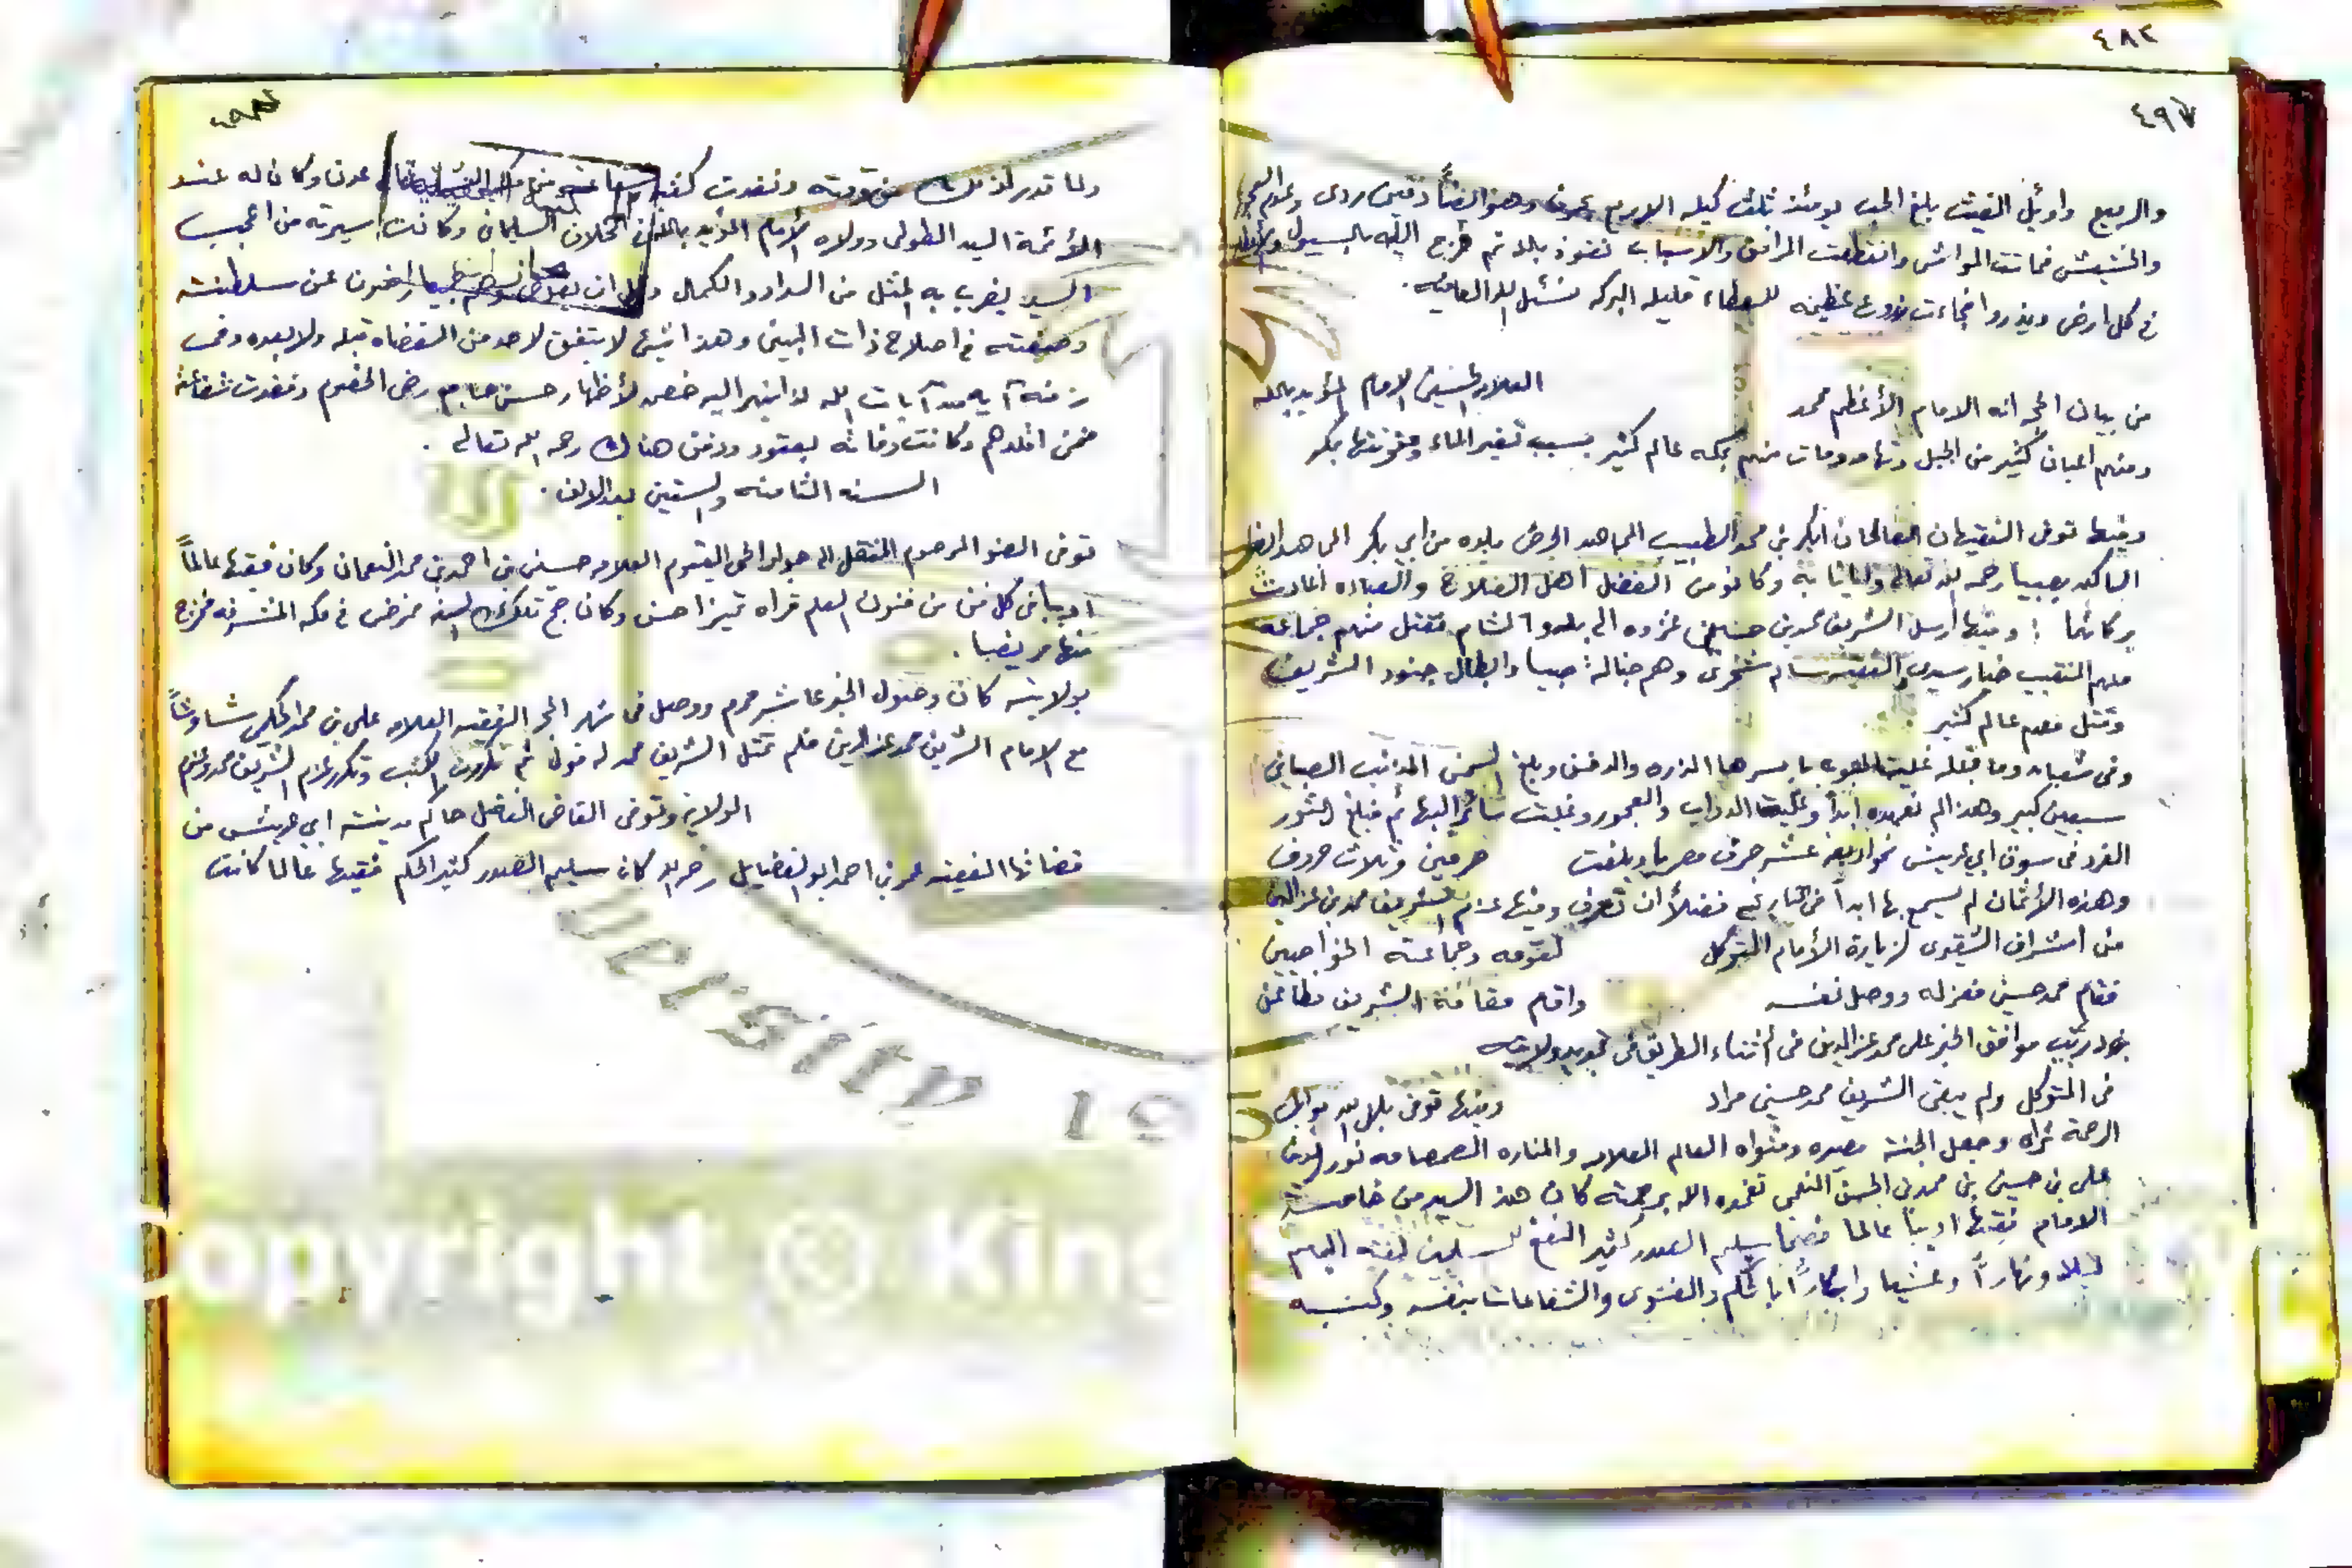 ٤٨٢
٤٩٧
والربيع واويل الغيث بلغ الحب يومئذ ثلث كيله الاربع بحرف وهو ايضاً دفين ردى وعدم العجور
والحشيش فماتت المواشى وانقطعت المرافق والأسباب نعوذ بالله ثم فرج الله بالسيول
فى كل ارض وبذروا فجاءت زروع عظيمه للعطاء قليله البركه نسئل الله العافيه.
من بيان الحجر انه الامام الأعظم محمد العلامه الحسين الامام المؤيد بالله
ومنهم اعيان كثير من الجبل وتهامه ومات منهم بمكه عالم كثير بسبب تغير الماء وعفونتها بكر
وفيها توفى الفقيهان الصالحان ابكر بن محمد الطبيب المجاهد الحرض بلده من ابي بكر المجاهد
الساكن بصبيا رحمه الله تعالى وايانا به وكانو من الفضل اهل الصلاح والعباده اعادت
بركاتهما : وفيها أرسل الشريف محمد بن حسين غزوه الى بلاد الشام فقتل منهم جماعه
منهم النقيب خيار سيدى سالم شخرى وهم خيالة صبيا وابطال جنود الشريف
وقتل معهم عالم كثير
وفى شعبان وما قبله غليت الحبوب باسرها الذره والدخن وبلغ السمن المذنب الصباني
سبعين كبير وهذا لم نعهده ابداً وغليت الدواب والعجور وغليت سائر البهائم فبلغ الثور
الفرد فى سوق ابي عريش نحو اربعه عشر حرف مصريا وبلغت حرفين وثلاث حروف
وهذه الأثمان لم يسمع بها ابداً فى التاريخ فضلاً أن تعرف وفيها عزم الشريف محمد بن عزالدين
من اشراف الشقيرى لزيارة الأمام المتوكل لقومه وجماعته الخواجيين
فقام محمد حسين فعزله ووصل نفسه واقام مقامه الشريف مطاعن
بن دريب موافق الخبر على محمد عزالدين فى أثناء الطريق فى تجديد ولايته
فى المتوكل ولم يبقى الشريف محمد حسين مراد وفيها توفى بلل الله بوابل
الرحمة ثراه وجعل الجنة مصيره ومثواه العالم العلامه والمناره الصمصامه نور الدين
على بن حسين بن محمد بن الحسن النعمى تغمده الله برحمته كان هذا السيد من خاصة
الامام فقيها اديباً عالما فصيحا سليم الصدر كثير النفع للمسلمين لفته اليهم
ليلا ونهاراً وعشيا وابكاراً بالحكم والفتوى والشفاعات بنفسه وكتبه
٤٩٨
ولما قدر لذلك من قومته ونفدت كفه عدن وكان له عند
الأئمة اليد الطولى وولاه الأمام المؤيد بالله المخلاف السليمانى وكانت سيرته من اعجب
السير يضرب به المثل من السداد والكمال راضون عن سلطنته
وصيغته فى اصلاح ذات البين وهذا شيئ لا يتفق لاحد من القضاه قبله ولا بعده وفى
زمنه آيه من آيات الله اليه خصم لأظهار حسن رضى الخصوم ونفدت شفاعته
فمن اقلدهم وكانت وفاته بعتود ودفن هناك رحمه الله تعالى .
السنه الثامنه والستين بعد الالف .
توفى الصنو المرحوم المنتقل الى جوار الحى القيوم العلامه حسين بن احمد بن محمد النعمان وكان فقيها عالماً
اديبا فى كل فن من فنون العلم قراه تميزا حسن وكان حج تلك السنه فمرض فى مكه المشرفه فخرج
منها مريضا .
بولايته كان وصول الخبر عاشر محرم ووصل فى شهر الحجه الفقيه العلامه على بن محمد الحكمى شاوشاً
مع الامام الشريف محمد عزالدين فلم تمثل الشريف محمد له قولا ثم تكررت الكتب وتكرر عزم الشريف محمد
الولاية وتوفى القاضى الفاضل حاكم مدينة ابي عريش من
قضاتها الفقيه عمر بن احمد ابو الفضايل رحمه الله كان سليم الصدر كثير الحكم فقيها عالما كانت
opyright © King
1957